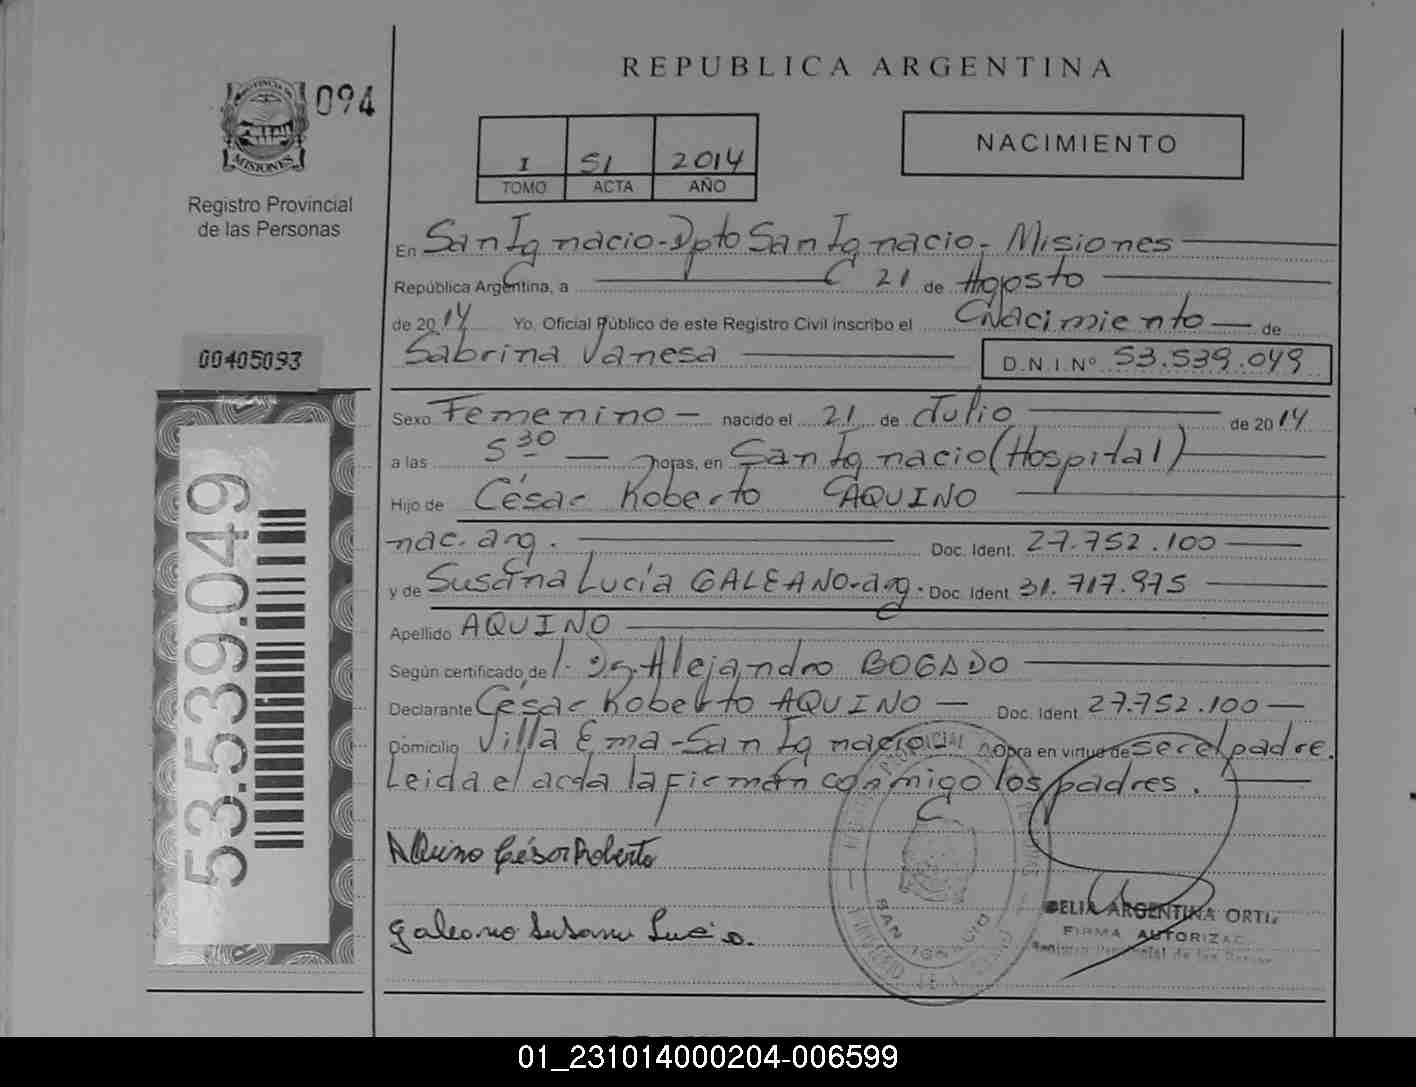 REPUBLICA ARGENTINA
094
MISIONES
Registro Provincial
de las Personas
I 51 2014
TOMO ACTA AÑO
NACIMIENTO
En San Ignacio-Dpto San Ignacio-Misiones
República Argentina, a 21 de Agosto
de 2014 Yo, Oficial Público de este Registro Civil inscribo el Nacimiento de
Sabrina Vanesa D.N.I.Nº 53.539.049
00405093
Sexo Femenino nacido el 21 de Julio de 2014
a las 5 30 horas, en San Ignacio (Hospital)
Hijo de César Roberto AQUINO
nac. arg. Doc. Ident. 27.752.100
y de Susana Lucía GALEANO-arg. Doc. Ident. 31.717.975
Apellido AQUINO
Según certificado de Dr. Alejandro BOGADO
Declarante César Roberto AQUINO Doc. Ident. 27.752.100
Domicilio Villa Ema-San Ignacio Obra en virtud de ser el padre.
Leida el acta la firman conmigo los padres.
53.539.049
Aquino César Roberto
Galeano Susana Lucía
SAN IGNACIO
DELIA ARGENTINA ORTIZ
FIRMA AUTORIZAD
01_231014000204-006599